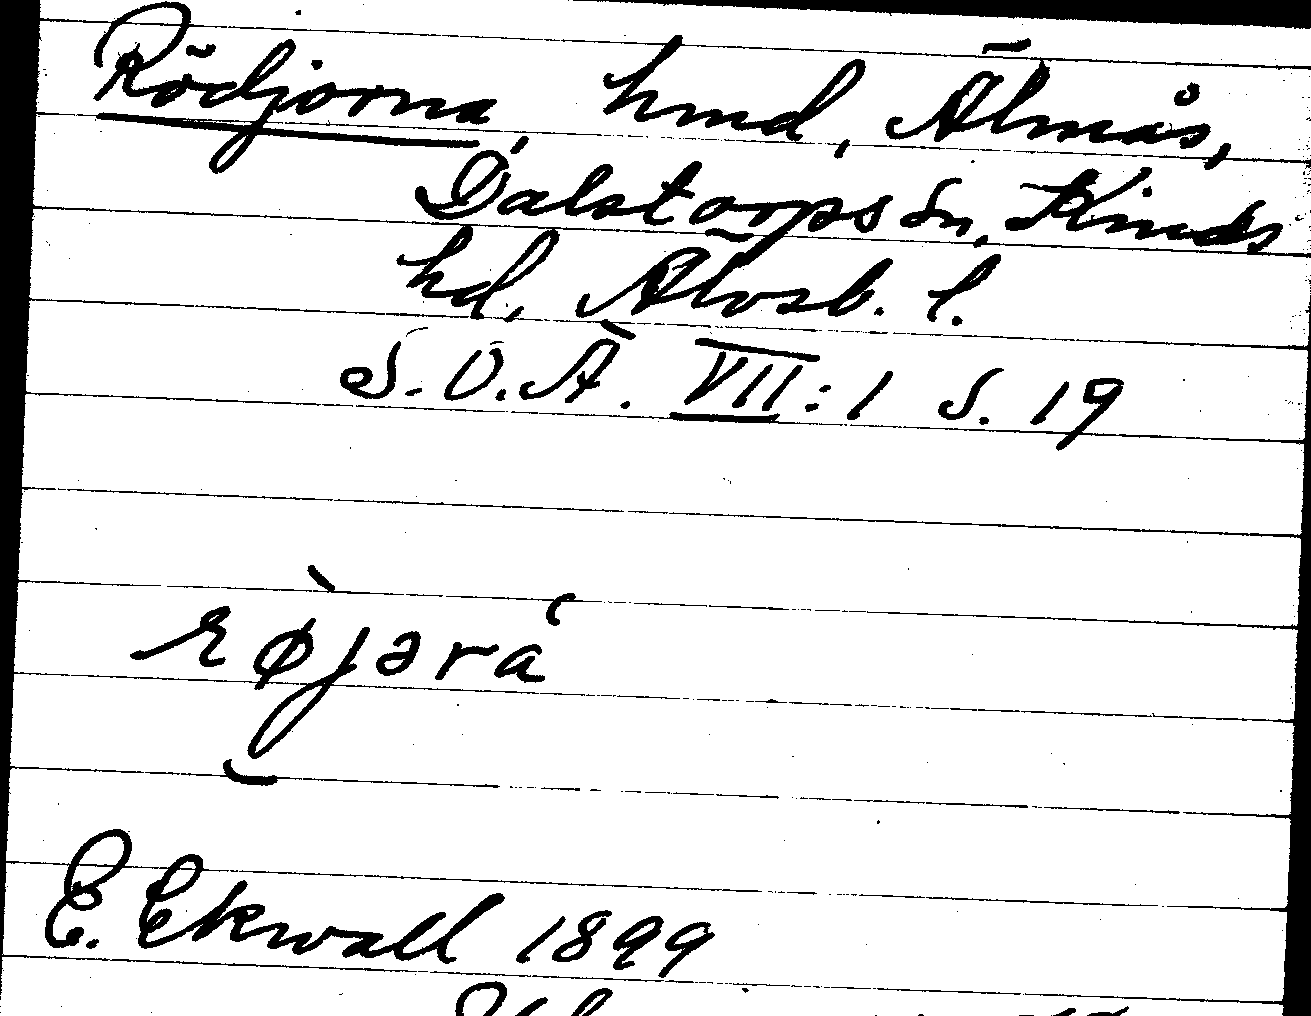 Rödjorna, hmd, Älmås,
Dalstorps sn, Kinds
hd, Älvsb. l.
S.O.Ä. VII:1 S. 19
røjəra
E. Ekwall 1899